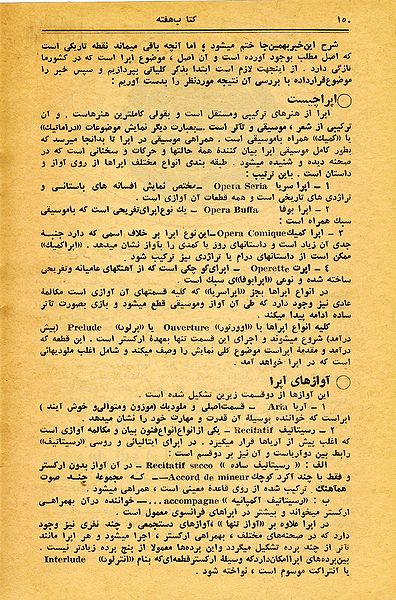 ۱۵۰ کتاب هفته
شرح این خبر بهمین‌جا ختم میشود ، اما آنچه باقی میماند نقطه تاریکی است
که اصل مطلب بوجود آورده است و آن اصل ، موضوع اپرا است که در کشور ما
تازگی دارد . از اینجهت لازم است ابتدا بذکر کلیاتی بپردازیم و سپس خبر را
موضوع قرار داده با بررسی آن نتیجه مورد نظر را بدست آوریم :
اپرا چیست
اپرا از هنرهای ترکیبی ومستقل است و بقولی کاملترین هنرهاست . و آن
ترکیبی از شعر ، موسیقی و تآتر است .ــ بعبارت دیگر نمایش موضوعات «دراماتیک»
یا «کمیک» همراه باموسیقی است . همراهی موسیقی در اپرا تا بدانجا میرسد که
بطور کامل موسیقی اپرا بیان کنندهٔ همهٔ حالتها و حرکات و سخنانی است که در
صحنه دیده و شنیده میشود . طبقه بندی انواع مختلف اپراها از روی آواز و
داستان است . باین ترتیب :
۱ ــ اپرا سریا Opera Seria ــ مختص نمایش افسانه های باستانی و
تراژدی های تاریخی است و همه قطعات آن آوازی است .
۲ ــ اپرا بوفا Opera Buffa ــ یک نوع اپرای تفریحی است که باموسیقی
سبک همراه است :
۳ ــ اپرا کمیک Opera Comique ــ این نوع اپرا بر خلاف اسمی که دارد جنبهٔ
جدی آن زیاد است و داستانهای روز یا کمدی را باواز نشان میدهد . «اپراکمیک»
ممکن است از داستانهای درام یا تراژدی نیز ترکیب شود
۴ ــ اپرت Operette ــ اپرای کوچکی است که از آهنگهای عامیانه وتفریحی
ساخته شده و نوعی «اپرابوفا»ی سبک است .
در انواع اپراها بجز «اپراسریا» که کلیه قسمتهای آن آوازی است مکالمهٔ
عادی نیز وجود دارد که طی آن آواز وموسیقی قطع میشود و بازی بصورت تآتر
ساده ادامه پیدا میکند
کلیه انواع اپراها با «اوورتور» Ouverture یا «پرلود» Prelude (پیش
درآمد) شروع میشوند و اجرای این قسمت تنها بعهدهٔ ارکستر است . این قطعه که
درآمد و مقدمهٔ اپراست موضوع کلی نمایش را وصف میکند و شامل اغلب ملودیهائی
است که در اپرا خواهد آمد .
آوازهای اپرا
این آوازها از دو قسمت زیرین تشکیل شده است .
۱ ــ آریا Aria ــ قسمت اصلی و ملودیک (موزون ومتوالی و خوش آیند )
اپراست که خواننده بوسیلهٔ آن قدرت و مهارت خود را نشان میدهد
۲ ــ رسیتاتیف Recitatif ــ یکی از انواع انواع فنون بیان و مکالمه آوازی است
که اغلب پیش از آریاها قرار میگیرد . در اپرای ایتالیائی و روسی «رسیتاتیف»
رابط بین دو آریاست و آن نیز بر دو قسم است :
الف : « رسیتاتیف ساده » Recitatif secco ــ در آن آواز بدون ارکستر
و فقط با چند آکرد کوچک Accord de mineur ــ که مجموعهٔ چند صوت
هماهنگ ترکیب شده از روی قاعدهٔ معینی است ، همراهی میشود .
ب : «رسیتاتیف آکمپانیه » accompagne ... ــ خواننده درآن بهمراهی
ارکستر میخواند و بیشتر در اپراهای فرانسوی معمول است .
در اپرا علاوه بر «آواز تنها » ،آوازهای دستجمعی و چند نفری نیز وجود
دارد که در صحنه‌های مختلف ، بهمراهی ارکستر ، اجرا میشود و هر اپرا مانند
تآتر از چند پرده تشکیل میگردد واین پرده‌ها معمولا از پنج پرده زیادتر نیست .
بین پرده‌های اپرا امکان دارد که وسیلهٔ ارکستر قطعه‌ای که بنام «انترلود» Interlude
یا آنتراکت موسوم است ، نواخته شود .